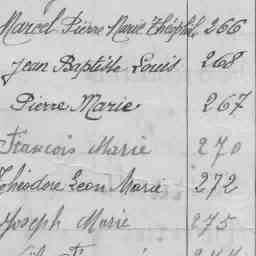 Marcel Pierre Marie Théophile 266
Jean Baptiste Louis 268
Pierre Marie 267
François Marie 270
Théodore Leon Marie 272
Joseph Marie 275